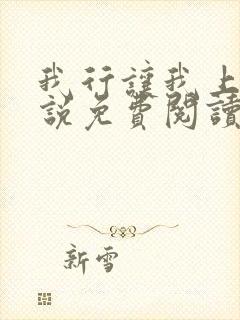 我行讓我上
說免費閱讀
新雪